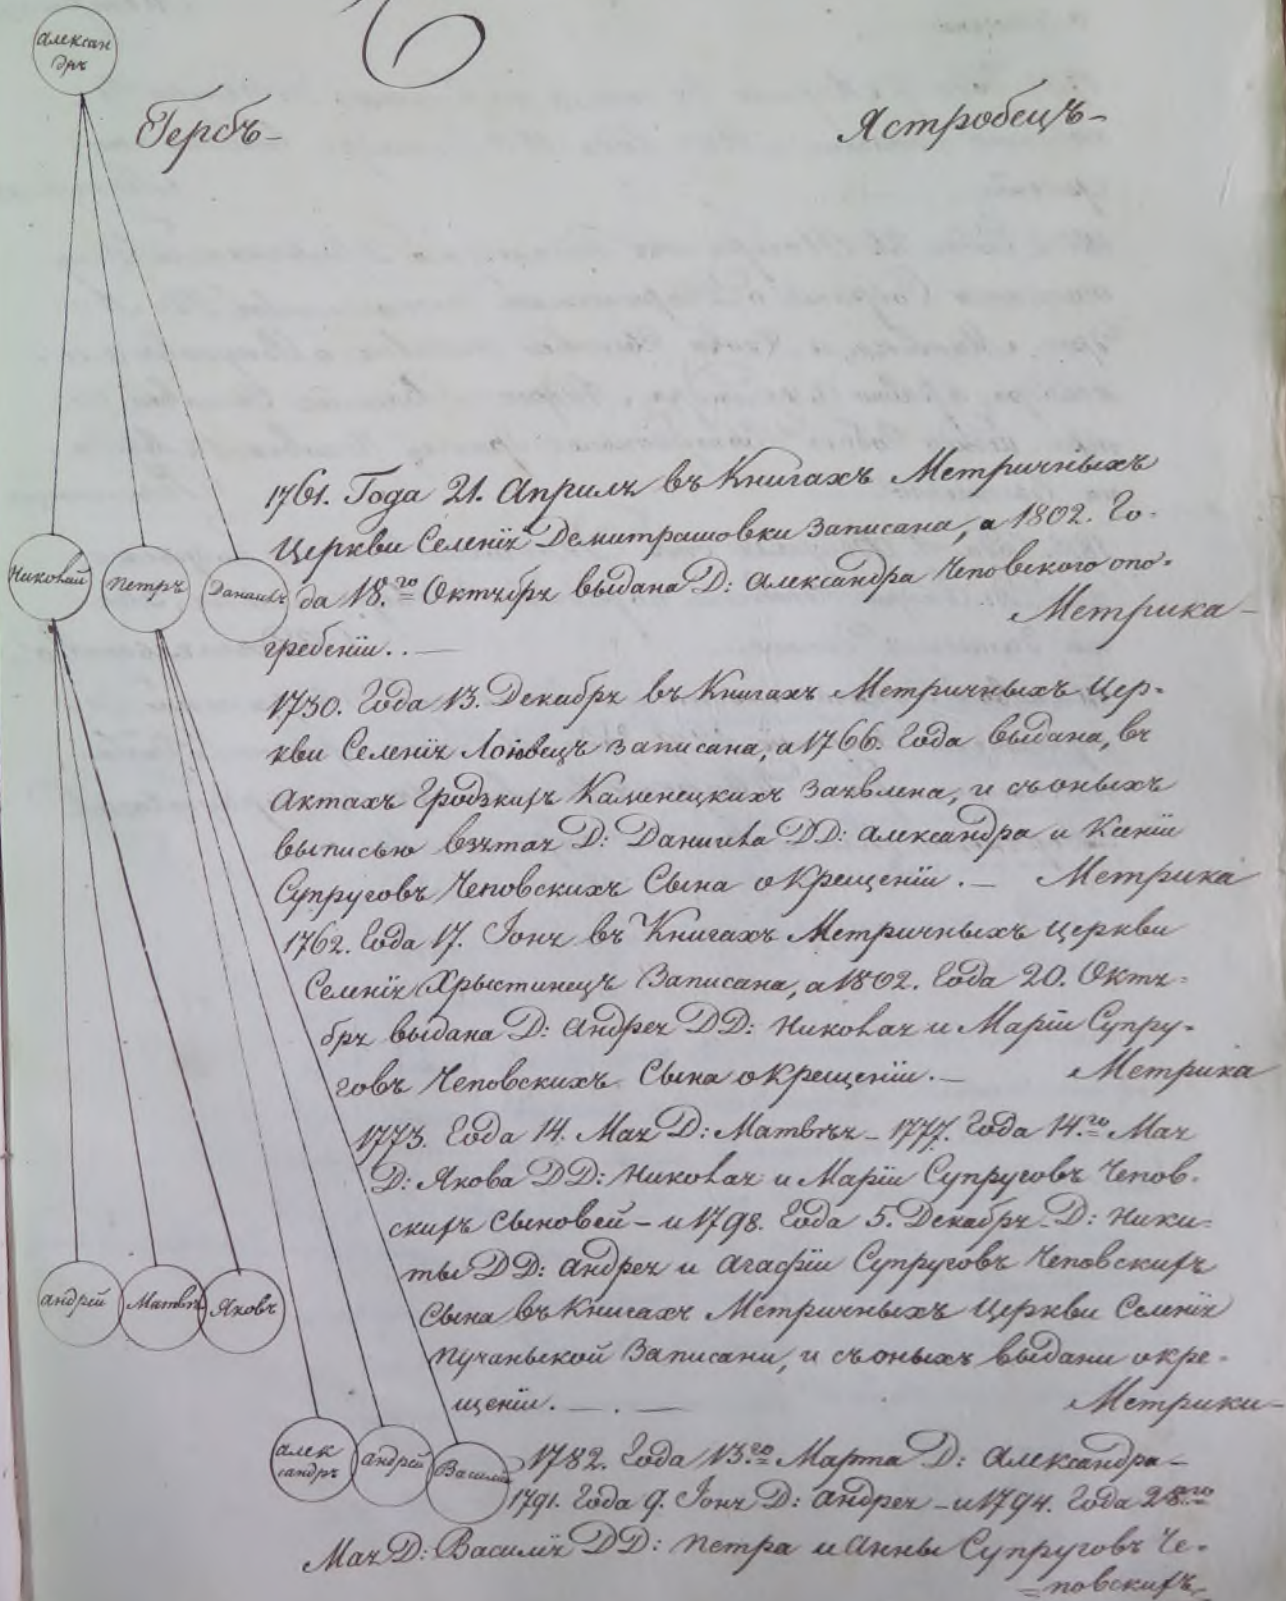 Александръ
Гербъ – Ястробецъ –
1761. Года 21. Апрыля въ Книгахъ Метричныхъ
Церкви Селенія Демитрашовки записана, а 1802. Го-
Николай Петръ Данаилъ
да 18.го Октября выдана Д: Александра Чеповского о по-
гребеніи. . — Метрика –
1730. Года 13. Декабря въ Книгахъ Метричныхъ Цер-
кви Селенія записана, а 1766. Года выдана, въ
Актахъ Гродзкихъ Каменецкихъ заявлена, и съ оныхъ
выписью взятая Д: Данаила ДД: Александра и Ксеніи
Супруговъ Чеповскихъ Сына о Крещеніи. – Метрика
1762. Года 17. Іюня въ Книгахъ Метричныхъ Церкви
Селенія Хрыстинецъ Записана, а 1802. Года 20. Октя-
бря выдана Д: Андрея ДД: Николая и Маріи Супру-
говъ Чеповскихъ Сына о Крещеніи. – Метрика
1773. Года 14. Мая Д: Матвѣя – 1777. Года 14.го Мая
Д: Якова ДД: Николая и Маріи Супруговъ Чепов-
скихъ Сыновей – и 1798. Года 5. Декабря – Д: Ники-
ты ДД: Андрея и Агафіи Супруговъ Чеповскихъ
Андрей Матвѣй Яковъ
Сына въ Книгахъ Метричныхъ Церкви Селенія
Записани, и съ оныхъ выдани о кре-
щеніи. — . — Метрики –
Александръ Андрей Василій
1782. Года 13.го Марта Д: Александра –
1791. Года 9. Іюня Д: Андрея – и 1794. Года 28.го
Мая Д: Василія ДД: Петра и Анны Супруговъ Че-
повскихъ